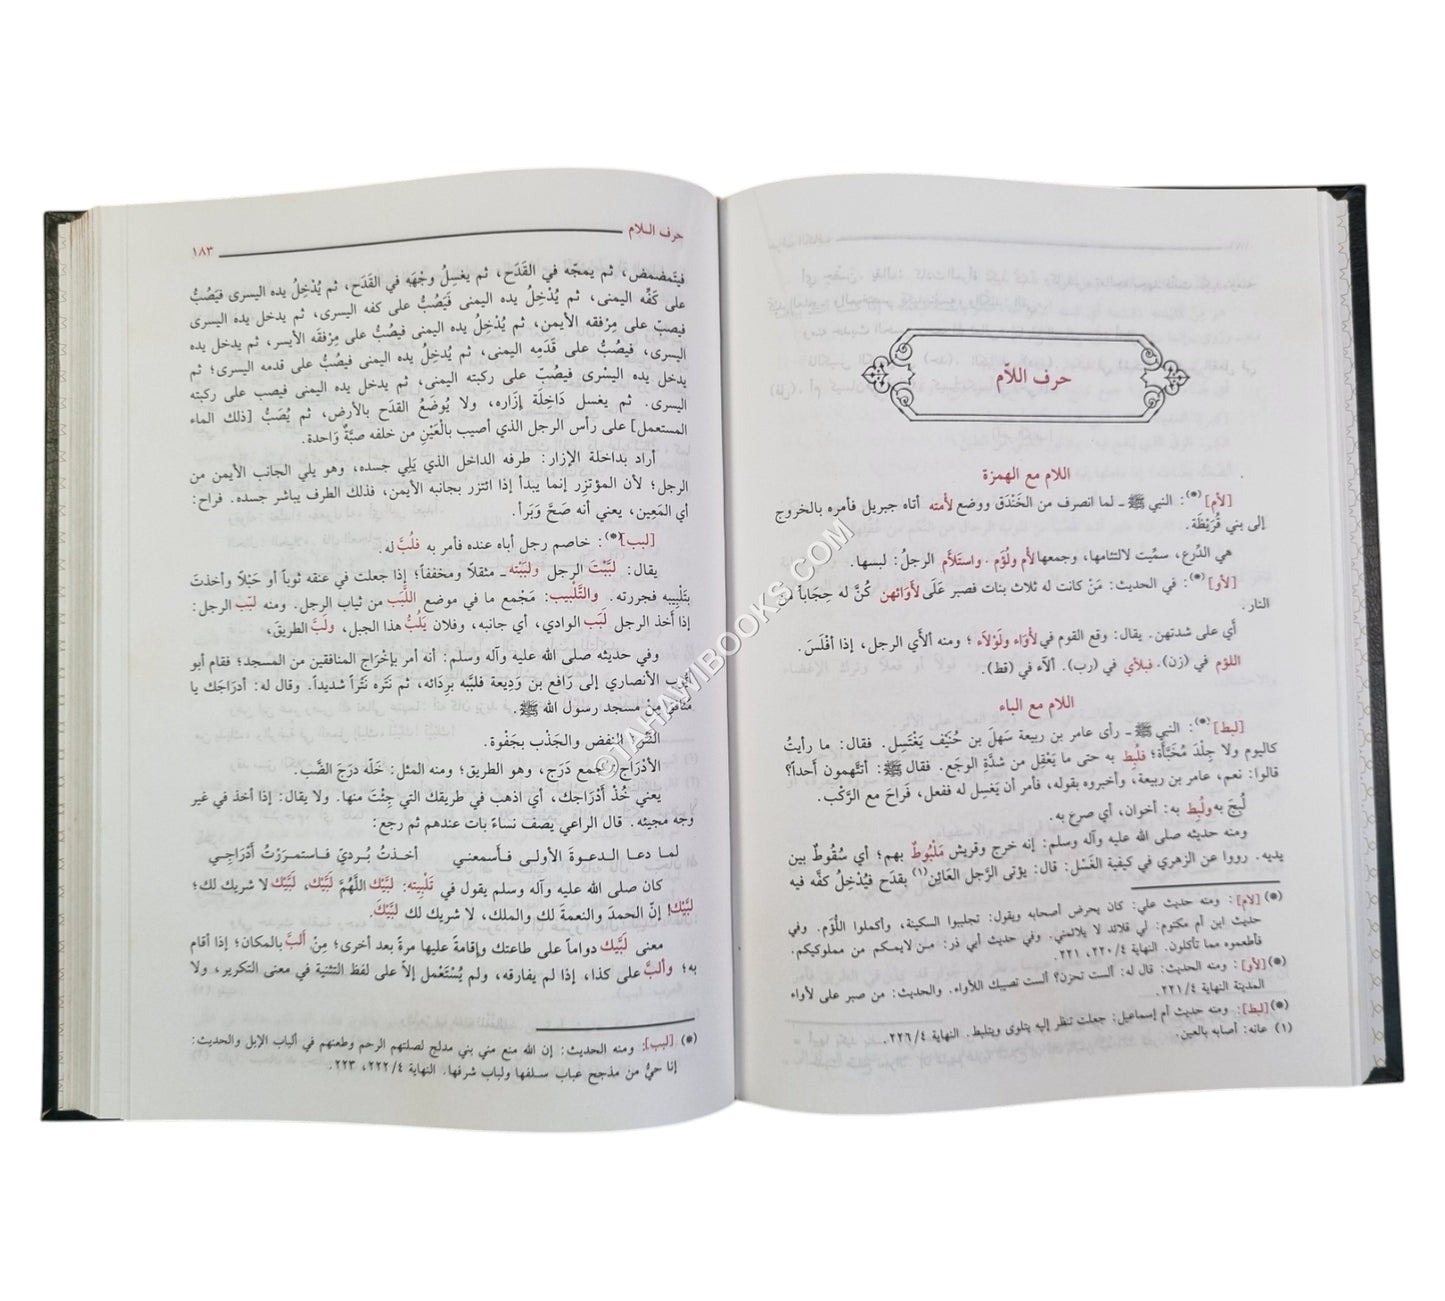 حرف اللاّم
اللام مع الهمزة
[لأم](*): النبي ﷺ ـ لما انصرف من الخَنْدَق ووضع لأْمته أتاه جبريل فأمره بالخروج
إلى بني قُرَيْظَة.
هي الدِّرع، سمِّيت لالتئامها، وجمعها لأْم ولُؤَم. واستَلأَم الرجلُ: لبسها.
[لأو](*): في الحديث: مَنْ كانت له ثلاث بنات فصبر عَلَى لأْوَائهن كُنَّ له حِجَاباً من
النار.
أي على شدتهن. يقال: وقع القوم في لأْوَاء ولَوْلاَء؛ ومنه ألأَي الرجل، إذا أَفْلَسَ.
اللؤم في (زن). فبلأي في (رب). ألآء في (قط).
اللام مع الباء
[لبط](*): النبي ﷺ ـ رأى عامر بن ربيعة سَهلَ بن حُنَيْف يَغْتَسِل. فقال: ما رأيتُ
كاليوم ولا جِلْدَ مُخَبَّأة؛ فلُبِط به حتى ما يَعْقِل من شدَّةِ الوجَع. فقال ﷺ: أَتتَّهمون أَحداً؟
قالوا: نعم، عامر بن ربيعة، وأخبروه بقوله، فأمر أن يَغسِل له ففعل، فَراحَ مع الرَّكْب.
لُبِجَ به ولُبِط به: أخوان، أي صرع به.
ومنه حديثه صلى الله عليه وآله وسلم: إنه خرج وقريش مَلْبُوطٌ بهم؛ أي سُقُوطٌ بين
يديه. رووا عن الزهري في كيفية الغَسْل: قال: يؤتى الرَّجل العَائِن(١) بقدَح فيُدْخِلُ كفَّه فيه
(*) [لام]: ومنه حديث علي: كان يحرض أصحابه ويقول: تجلببوا السكينة، وأكملوا اللُّؤَم. وفي
حديث ابن أم مكتوم: لي قلائد لا يلائمني. وفي حديث أبي ذر: من لايمكم من مملوكيكم
فأطعموه مما تأكلون. النهاية ٢٢٠/٤، ٢٢١.
(*) [لأو]: ومنه الحديث: قال له: ألست تحزن؟ ألست تصيبك اللأواء. والحديث: من صبر على لأواء
المدينة النهاية ٢٢١/٤.
(*) [لبط]: ومنه حديث أم إسماعيل: جعلت تنظر إليه يتلوى ويتلبط. النهاية ٢٢٦/٤.
(١) عانه: أصابه بالعين.
حرف الـلام ١٨٣
فيتَمضمض، ثم يمجّه في القَدَح، ثم يغسِلُ وجْهَه في القَدَح، ثم يُدْخِلُ يده اليسرى فيَصُبُّ
على كَفِّه اليمنى، ثم يُدْخِلُ يده اليمنى فَيَصُبُّ على كفه اليسرى، ثم يدخل يده اليسرى
فيصبّ على مِرْفقه الأيمن، ثم يُدْخِلُ يده اليمنى فيصُبُّ على مِرْفقَه الأيسر، ثم يدخل يده
اليسرى، فيصُبُّ على قَدَمِه اليمنى، ثم يُدخِلُ يده اليمنى فيصُبُّ على قدمه اليسرى؛ ثم
يدخل يده اليسْرى فيصُبّ على ركبته اليمنى، ثم يدخل يده اليمنى فيصب على ركبته
اليسرى. ثم يغسل دَاخِلَة إزَاره، ولا يُوضَعُ القدَح بالأرض، ثم يُصَبُّ [ذلك الماء
المستعمل] على رأس الرجل الذي أصيب بالْعَيْنِ من خلفه صبَّةً وَاحدة.
أراد بداخلة الإزار: طرفه الداخل الذي يَلِي جسده، وهو يلي الجانب الأيمن من
الرجل؛ لأن المؤتزِر إنما يبدأ إذا ائتزر بجانبه الأيمن، فذلك الطرف يباشر جسده. فراح:
أي المَعِين، يعني أنه صَحَّ وَبَرأ.
[لبب](*): خاصم رجل أباه عنده فأمر به فلُبَّ له.
يقال: لبَّبْتَ الرجل ولبَبْته ـ مثقلاً ومخففاً؛ إذا جعلت في عنقه ثوباً أو حَبْلاً وأخذتَ
بتَلْبِيبه فجررته. والتَّلْبيب: مَجْمع ما في موضع اللَّبَب من ثياب الرجل. ومنه لبَّب الرجل:
إذا أخذ الرجل لَبَب الوادي، أي جانبه، وفلان يَلُبُّ هذا الجبل، ولَبَّ الطريقَ،
وفي حديثه صلى الله عليه وآله وسلم: أنه أمر بإخْرَاج المنافقين من المسجد؛ فقام أبو
أيُّوب الأنصاري إلى رَافع بن وَدِيعة فلبَّبه برِدَائه، ثم نَتَره نَتْراً شديداً. وقال له: أدرَاجَك يا
مُنافق منْ مسجد رسول الله ﷺ.
النَّتْرُ: النفض والجَذْب بجَفْوة.
الأَدْرَاج: جمع دَرَج، وهو الطريق؛ ومنه المثل: خَلّه درَجَ الضَّب.
يعني خُذْ أَدْرَاجك، أي اذهب في طريقك التي جِئْتَ منها. ولا يقال: إذا أخذ في غير
وجه مجيئه. قال الراعي يصف نساءً بات عندهم ثم رجع:
لمـا دعـا الـدعـوةَ الأولـى فـأسمعنـي أخـذتُ بُـرديّ فـاستمـرَرْتُ أَدْرَاجـي
كان صلى الله عليه وآله وسلم يقول في تَلْبِيته: لبَّيْك اللَّهمّ لَبَّيْك، لَبَّيْكَ لا شريك لك؛
لبَّيْك! إنّ الحمدَ والنعمةَ لك والملك، لا شريك لك لبَّيْكَ.
معنى لَبَّيك دواماً على طاعتك وإقامةً عليها مرةً بعد أخرى؛ مِنْ أَلَبَّ بالمكان؛ إذا أقام
به؛ وألبَّ على كذا، إذا لم يفارقه، ولم يُسْتَعْمل إلاَّ على لفظ التثنية في معنى التكرير، ولا
(*) [لبب]: ومنه الحديث: إن الله منع مني بني مدلج لصلتهم الرحم وطعنهم في ألباب الإبل والحديث:
إنا حيٌّ من مذجح عباب سـلفها ولباب شرفها. النهاية ٢٢٢/٤، ٢٢٣.
©TAHAWIBOOKS.COM